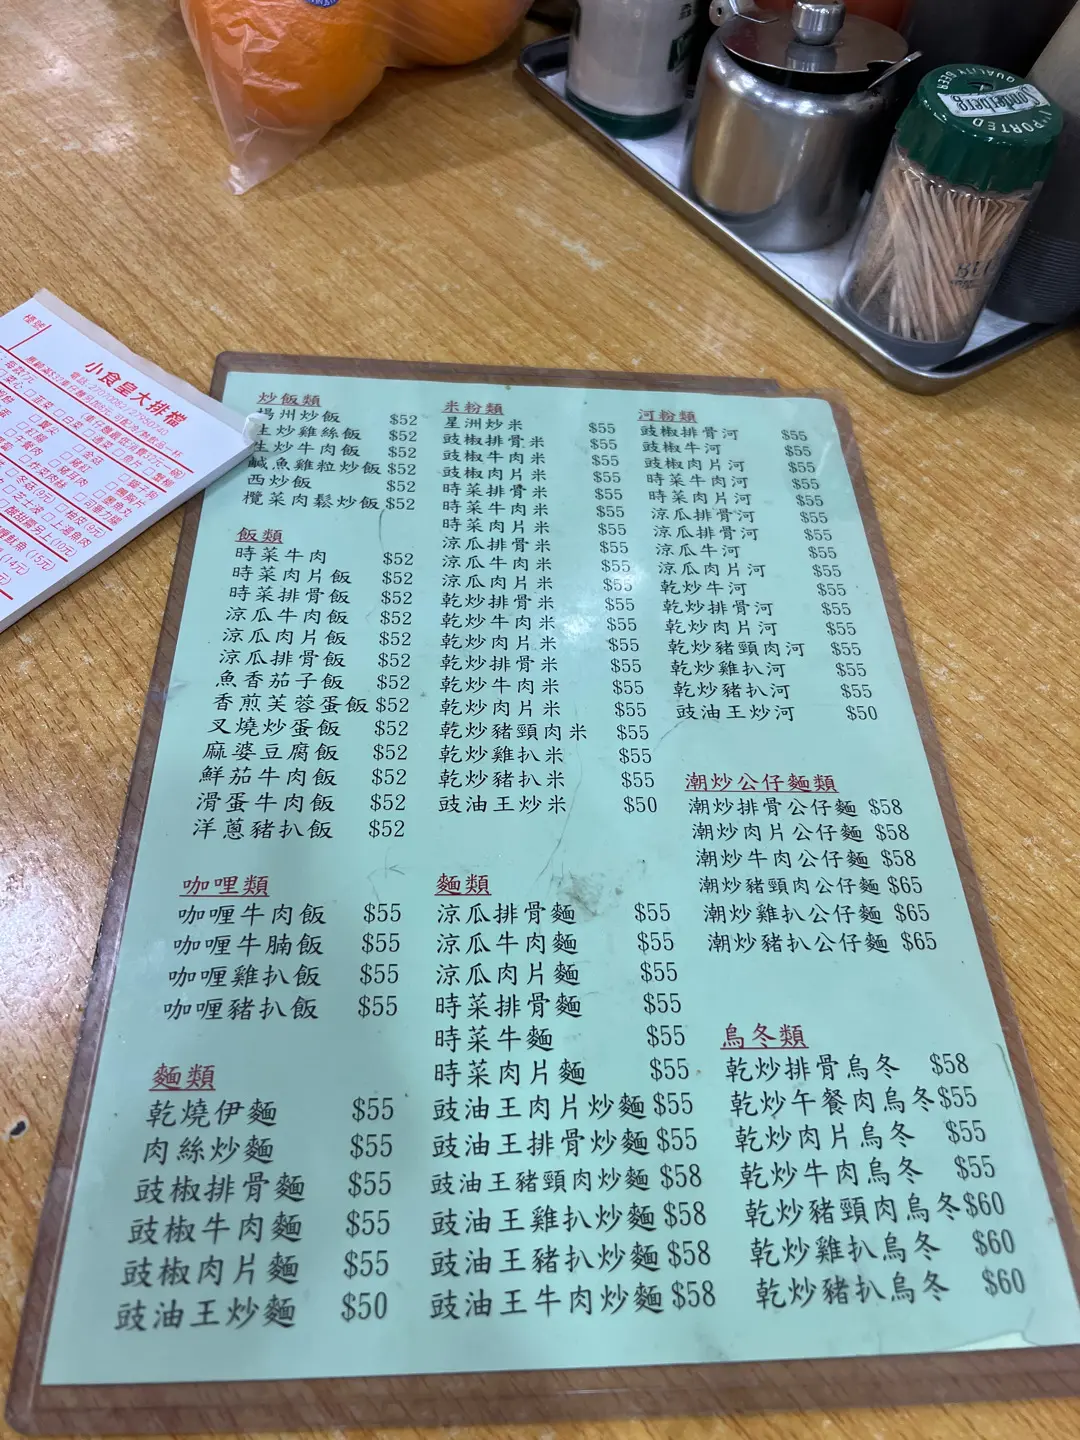 Sonderberg
QUALITY BEER
小食皇大排檔
炒飯類
揚州炒飯 $52
生炒雞絲飯 $52
生炒牛肉飯 $52
鹹魚雞粒炒飯 $52
西炒飯 $52
欖菜肉鬆炒飯 $52
飯類
時菜牛肉 $52
時菜肉片飯 $52
時菜排骨飯 $52
涼瓜牛肉飯 $52
涼瓜肉片飯 $52
涼瓜排骨飯 $52
魚香茄子飯 $52
香煎芙蓉蛋飯 $52
叉燒炒蛋飯 $52
麻婆豆腐飯 $52
鮮茄牛肉飯 $52
滑蛋牛肉飯 $52
洋蔥豬扒飯 $52
咖哩類
咖喱牛肉飯 $55
咖喱牛腩飯 $55
咖喱雞扒飯 $55
咖喱豬扒飯 $55
麵類
乾燒伊麵 $55
肉絲炒麵 $55
豉椒排骨麵 $55
豉椒牛肉麵 $55
豉椒肉片麵 $55
豉油王炒麵 $50
米粉類
星洲炒米 $55
豉椒排骨米 $55
豉椒牛肉米 $55
豉椒肉片米 $55
時菜排骨米 $55
時菜牛肉米 $55
時菜肉片米 $55
涼瓜排骨米 $55
涼瓜牛肉米 $55
涼瓜肉片米 $55
乾炒排骨米 $55
乾炒牛肉米 $55
乾炒肉片米 $55
乾炒排骨米 $55
乾炒牛肉米 $55
乾炒肉片米 $55
乾炒豬頸肉米 $55
乾炒雞扒米 $55
乾炒豬扒米 $55
豉油王炒米 $50
麵類
涼瓜排骨麵 $55
涼瓜牛肉麵 $55
涼瓜肉片麵 $55
時菜排骨麵 $55
時菜牛麵 $55
時菜肉片麵 $55
豉油王肉片炒麵 $55
豉油王排骨炒麵 $55
豉油王豬頸肉炒麵 $58
豉油王雞扒炒麵 $58
豉油王豬扒炒麵 $58
豉油王牛肉炒麵 $58
河粉類
豉椒排骨河 $55
豉椒牛河 $55
豉椒肉片河 $55
時菜牛肉河 $55
時菜肉片河 $55
涼瓜排骨河 $55
涼瓜排骨河 $55
涼瓜牛河 $55
涼瓜肉片河 $55
乾炒牛河 $55
乾炒排骨河 $55
乾炒肉片河 $55
乾炒豬頸肉河 $55
乾炒雞扒河 $55
乾炒豬扒河 $55
豉油王炒河 $50
潮炒公仔麵類
潮炒排骨公仔麵 $58
潮炒肉片公仔麵 $58
潮炒牛肉公仔麵 $58
潮炒豬頸肉公仔麵 $65
潮炒雞扒公仔麵 $65
潮炒豬扒公仔麵 $65
烏冬類
乾炒排骨烏冬 $58
乾炒午餐肉烏冬 $55
乾炒肉片烏冬 $55
乾炒牛肉烏冬 $55
乾炒豬頸肉烏冬 $60
乾炒雞扒烏冬 $60
乾炒豬扒烏冬 $60